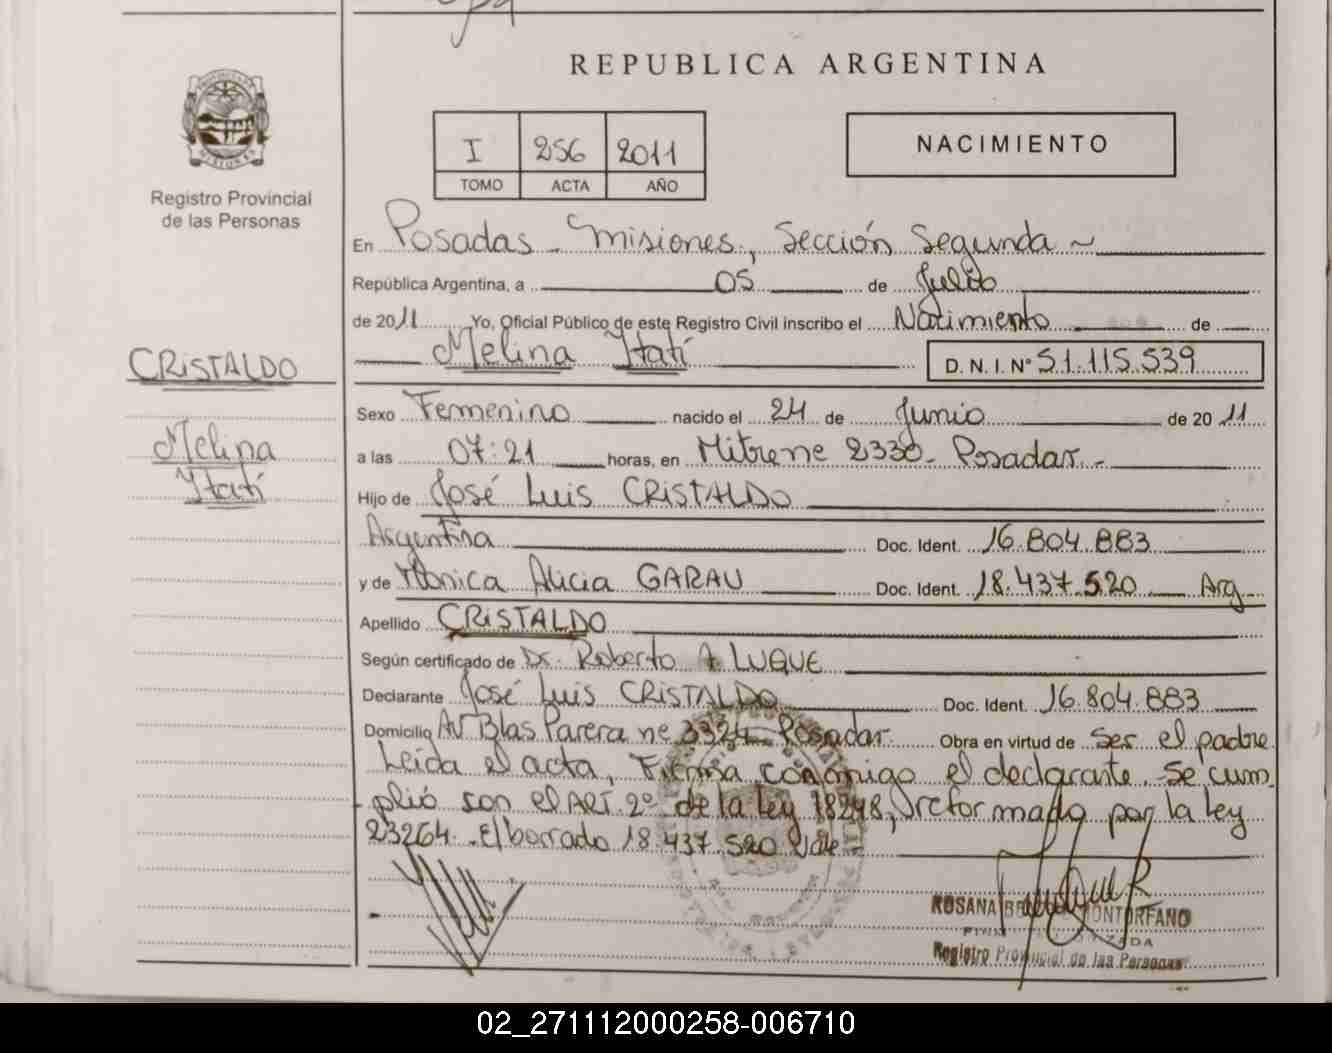 REPUBLICA ARGENTINA
I 256 2011
TOMO ACTA AÑO
NACIMIENTO
Registro Provincial
de las Personas
En Posadas - Misiones, Sección Segunda
República Argentina, a 05 de Julio
de 2011 Yo, Oficial Público de este Registro Civil inscribo el Nacimiento de
Melina Itatí D. N. I. Nº 51.115.539
CRISTALDO
Melina
Itatí
Sexo Femenino nacido el 24 de Junio de 2011
a las 07:21 horas, en 2330 - Posadas -
Hijo de José Luis CRISTALDO
Argentina Doc. Ident. 16.804.883
y de Mónica Alicia GARAU Doc. Ident. 18.437.520 Arg
Apellido CRISTALDO
Según certificado de Dr. Roberto A LUQUE
Declarante José Luis CRISTALDO Doc. Ident. 16.804.883
Domicilio Av Blas Parera nº 3324 Posadas Obra en virtud de ser el padre
Leída el acta, Firma conmigo el declarante. Se cum
plió con el ART. 2º de la ley 18248, reformado por la ley
23264. El borrado 18.437.520 Vale -
ROSANA MONTORFANO
Registro Provincial de las Personas
02_271112000258-006710